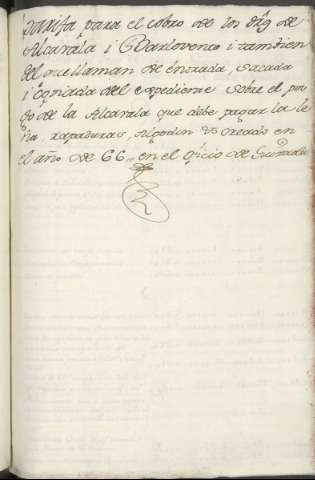 tarifa para el cobro de los dros de
Alcavala i Barlovento i tambien
del que llaman de Entrada, sacada
i copiada del expediente sobre el pa
go de la Alcavala que debe pagar la le
ña, rapaduras, Algodon &c creado en
el año de 66,, en el oficio de